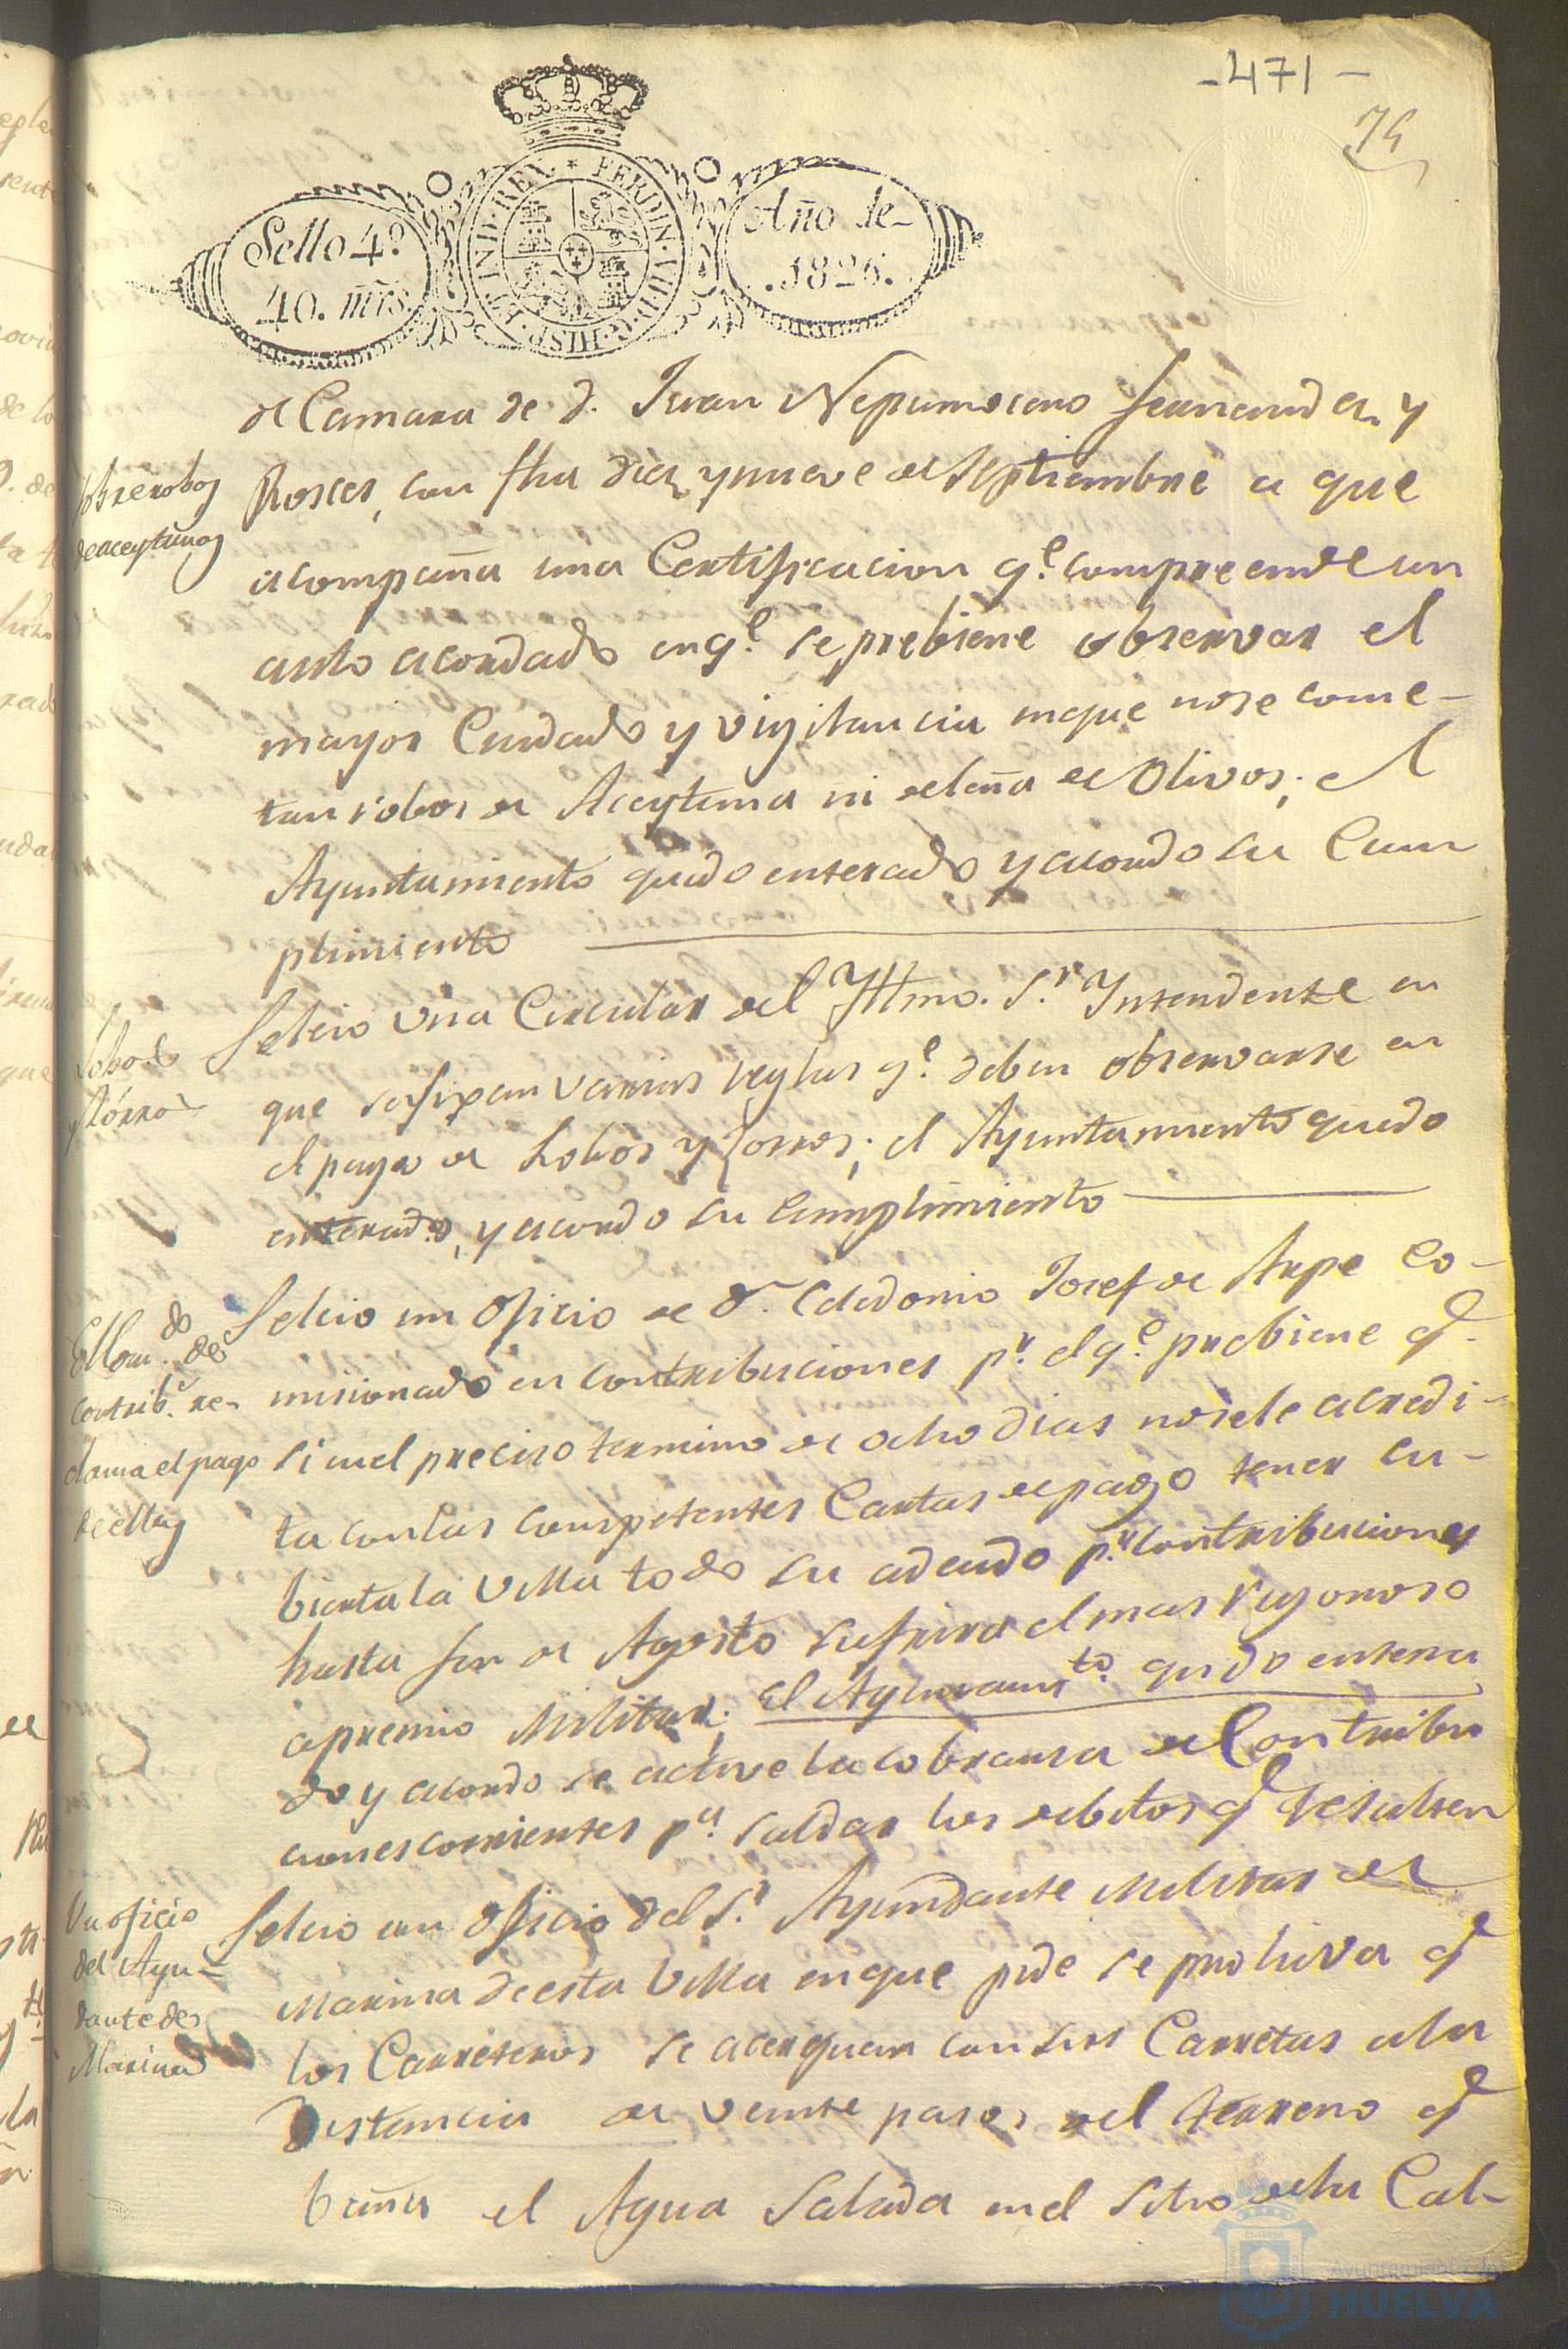 -471-
74
Sello 4º
40. mrs.
HISP. ET IND. REX * FERDIN. VII. D. G.
Año de
1826.
de Camara de d. Juan Nepumoceno Fernandez y
Roses, con fha diez y nueve de Septiembre a que
acompaña una Certificacion qe. compreende un
auto acordado en qe. se prebiene observar el
mayor Cuidado y vigilancia en que no se come-
tan robos de Aceytuna ni de leña de Olivos; el
Ayuntamiento quedo enterado y acordo su Cum
plimiento
Sobre robos
de aceytunas
Se leio una Circular del Yltmo. Sr. Yntendente en
que se fixan varias reglas qe. deben observarse en
el pago de Lobos y Zorros; el Ayuntamiento quedo
enterado, y acordo su Cumplimiento
Lobos
y Zorros
Se leio un oficio de Dn. Celedonio Josef de Arpe Co-
misionado en contribuciones pr. el qe. prebiene qe.
si en el preciso termino de ocho dias no se le acredi-
ta con las competentes Cartas de pago tener cu-
bierta la Villa todo su adeudo pr. contribuciones
hasta fin de Agosto sufrira el mas rigoroso
apremio Militar. El Ayuntamto. quedo entera
do y acordo se active la cobransa de Contribu
ciones corrientes pa. saldar los debitos qe resulten
El Comdo. de
contribs. re-
clama el pago
de ellas
Se leio un oficio del Sr. Ayundante Militar de
Marina de esta Villa en que pide se prohiva qe
los Carreteros se acerquen con sus Carretas a la
Distancia de veinte pasos del terreno qe
baña el Agua Salada en el Sitio de la Cal-
Un oficio
del Ayu-
dante de
Marina
Ayuntamiento de
HUELVA